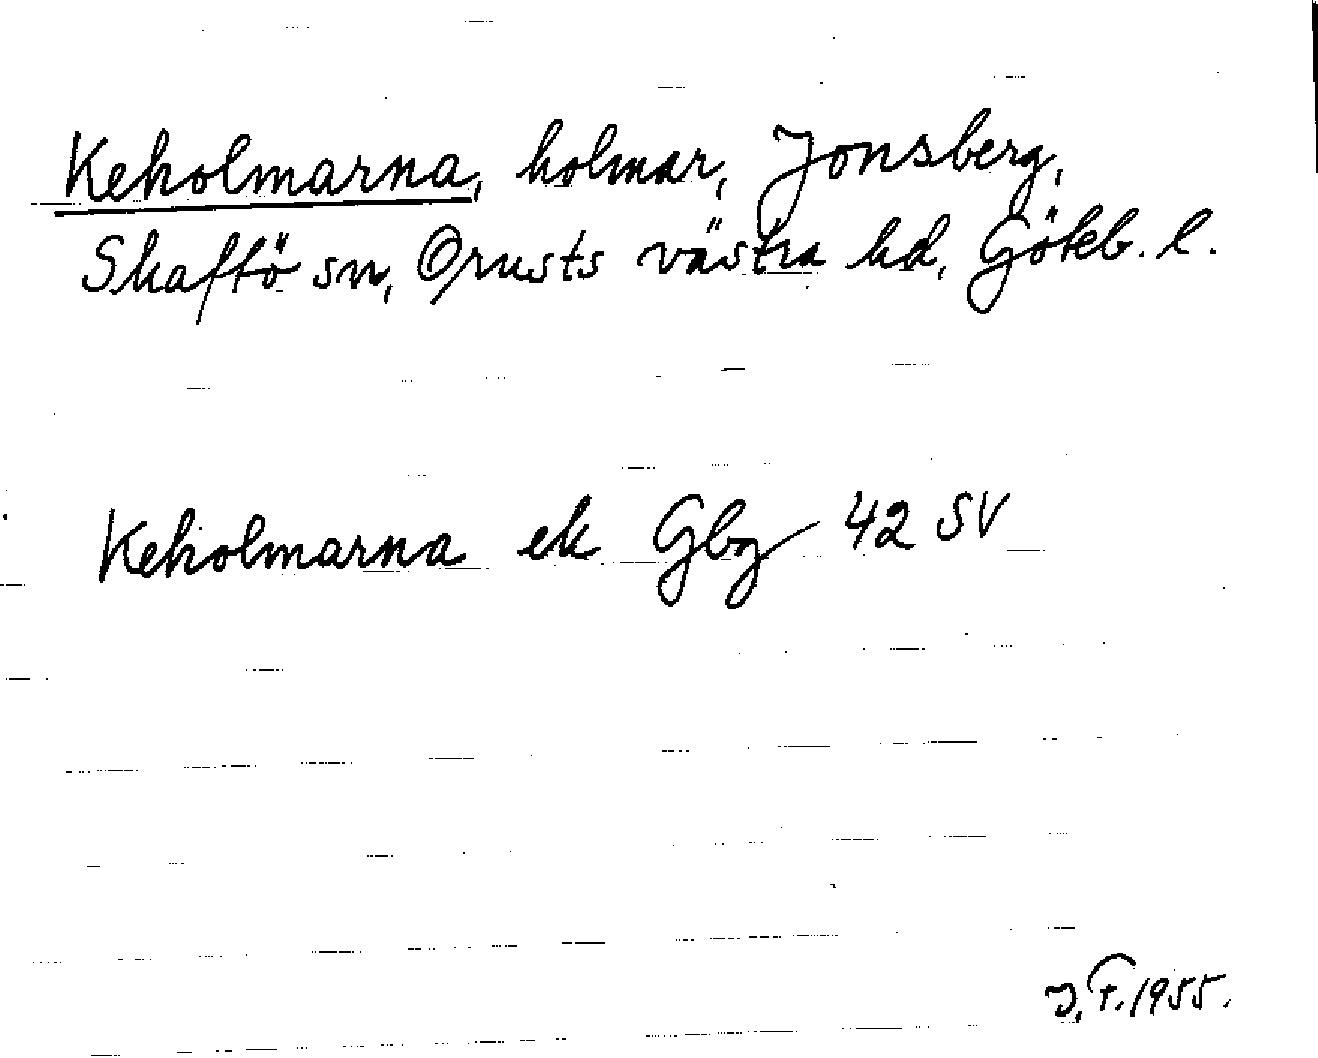 Keholmarna, holmar, Jonsberg,
Skaftö sn, Orusts västra hd, Göteb. l.
Keholmarna ek Gbg 42 SV
J. F. 1955.